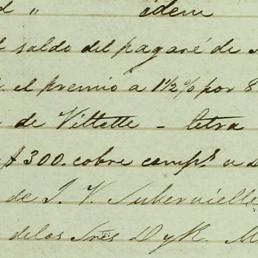 d " idem
saldo del pagaré de
el premio a 1½ % por 8
de Villette - letra
$300. cobre comp.s a
de J. V. Subervielle
de los Sres Dyk. M